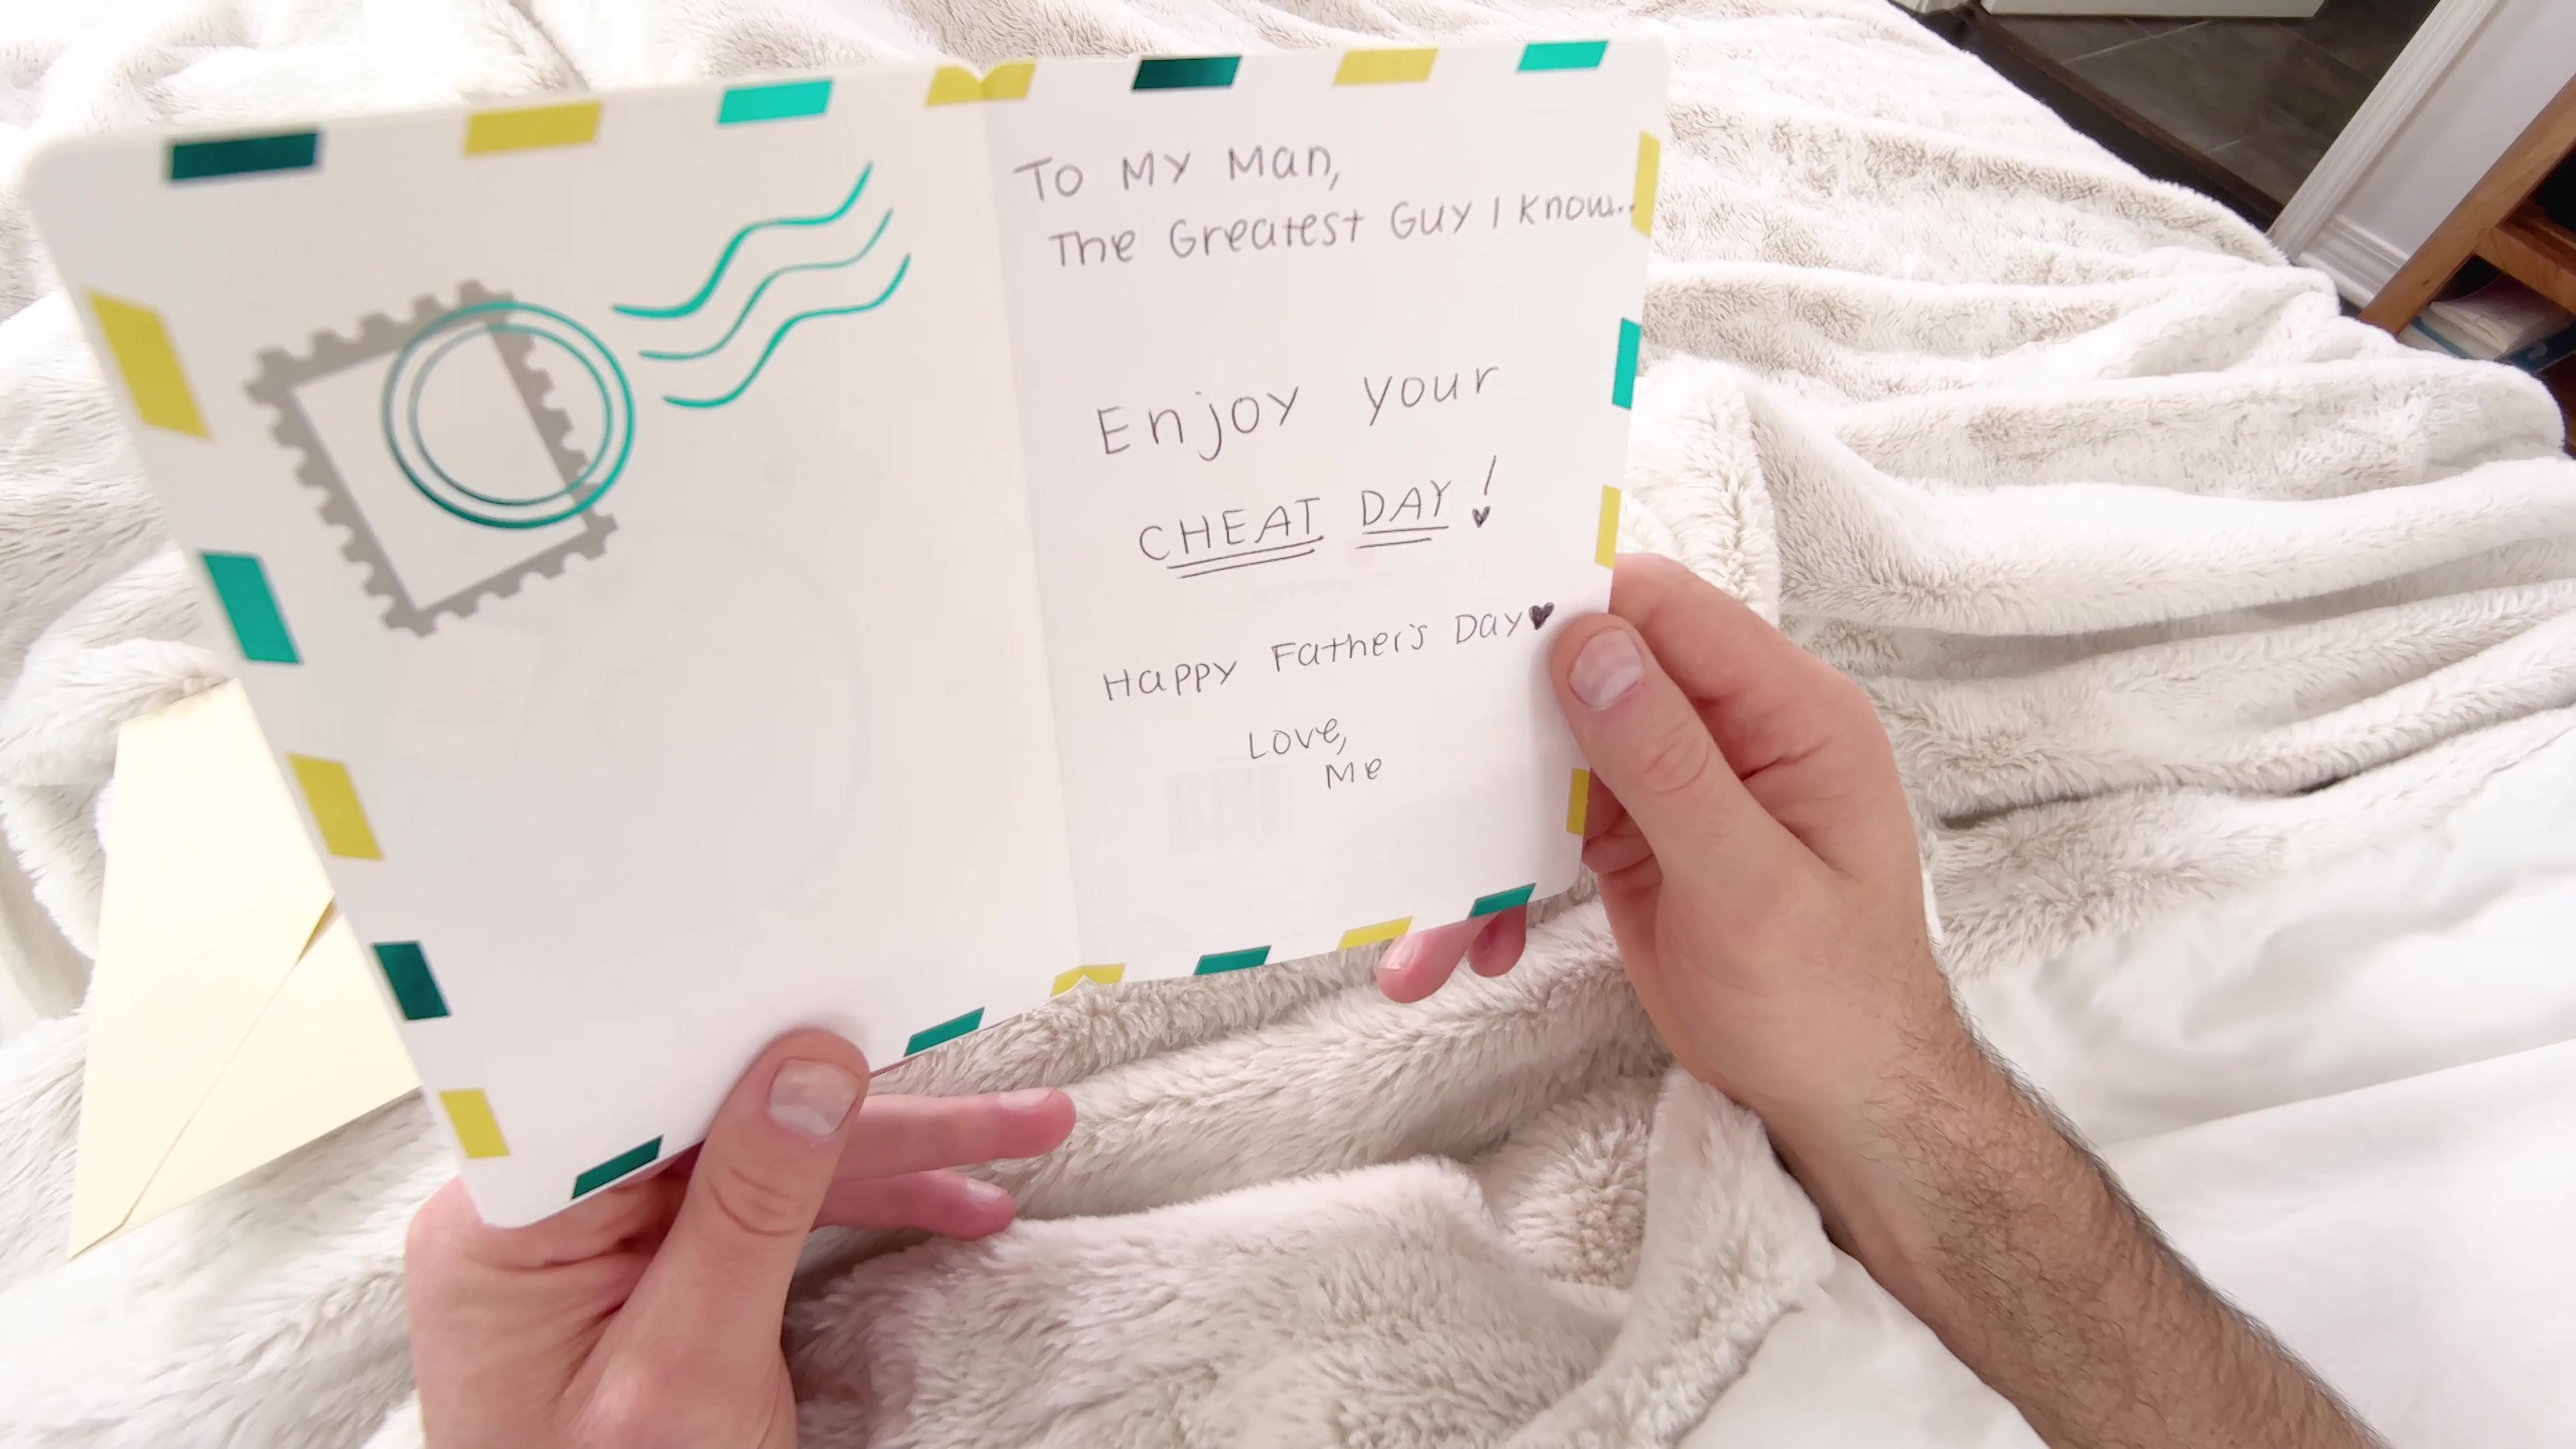 To My Man,
The Greatest Guy I know..
Enjoy your
CHEAT DAY!
Happy Father's Day♥
Love,
Me